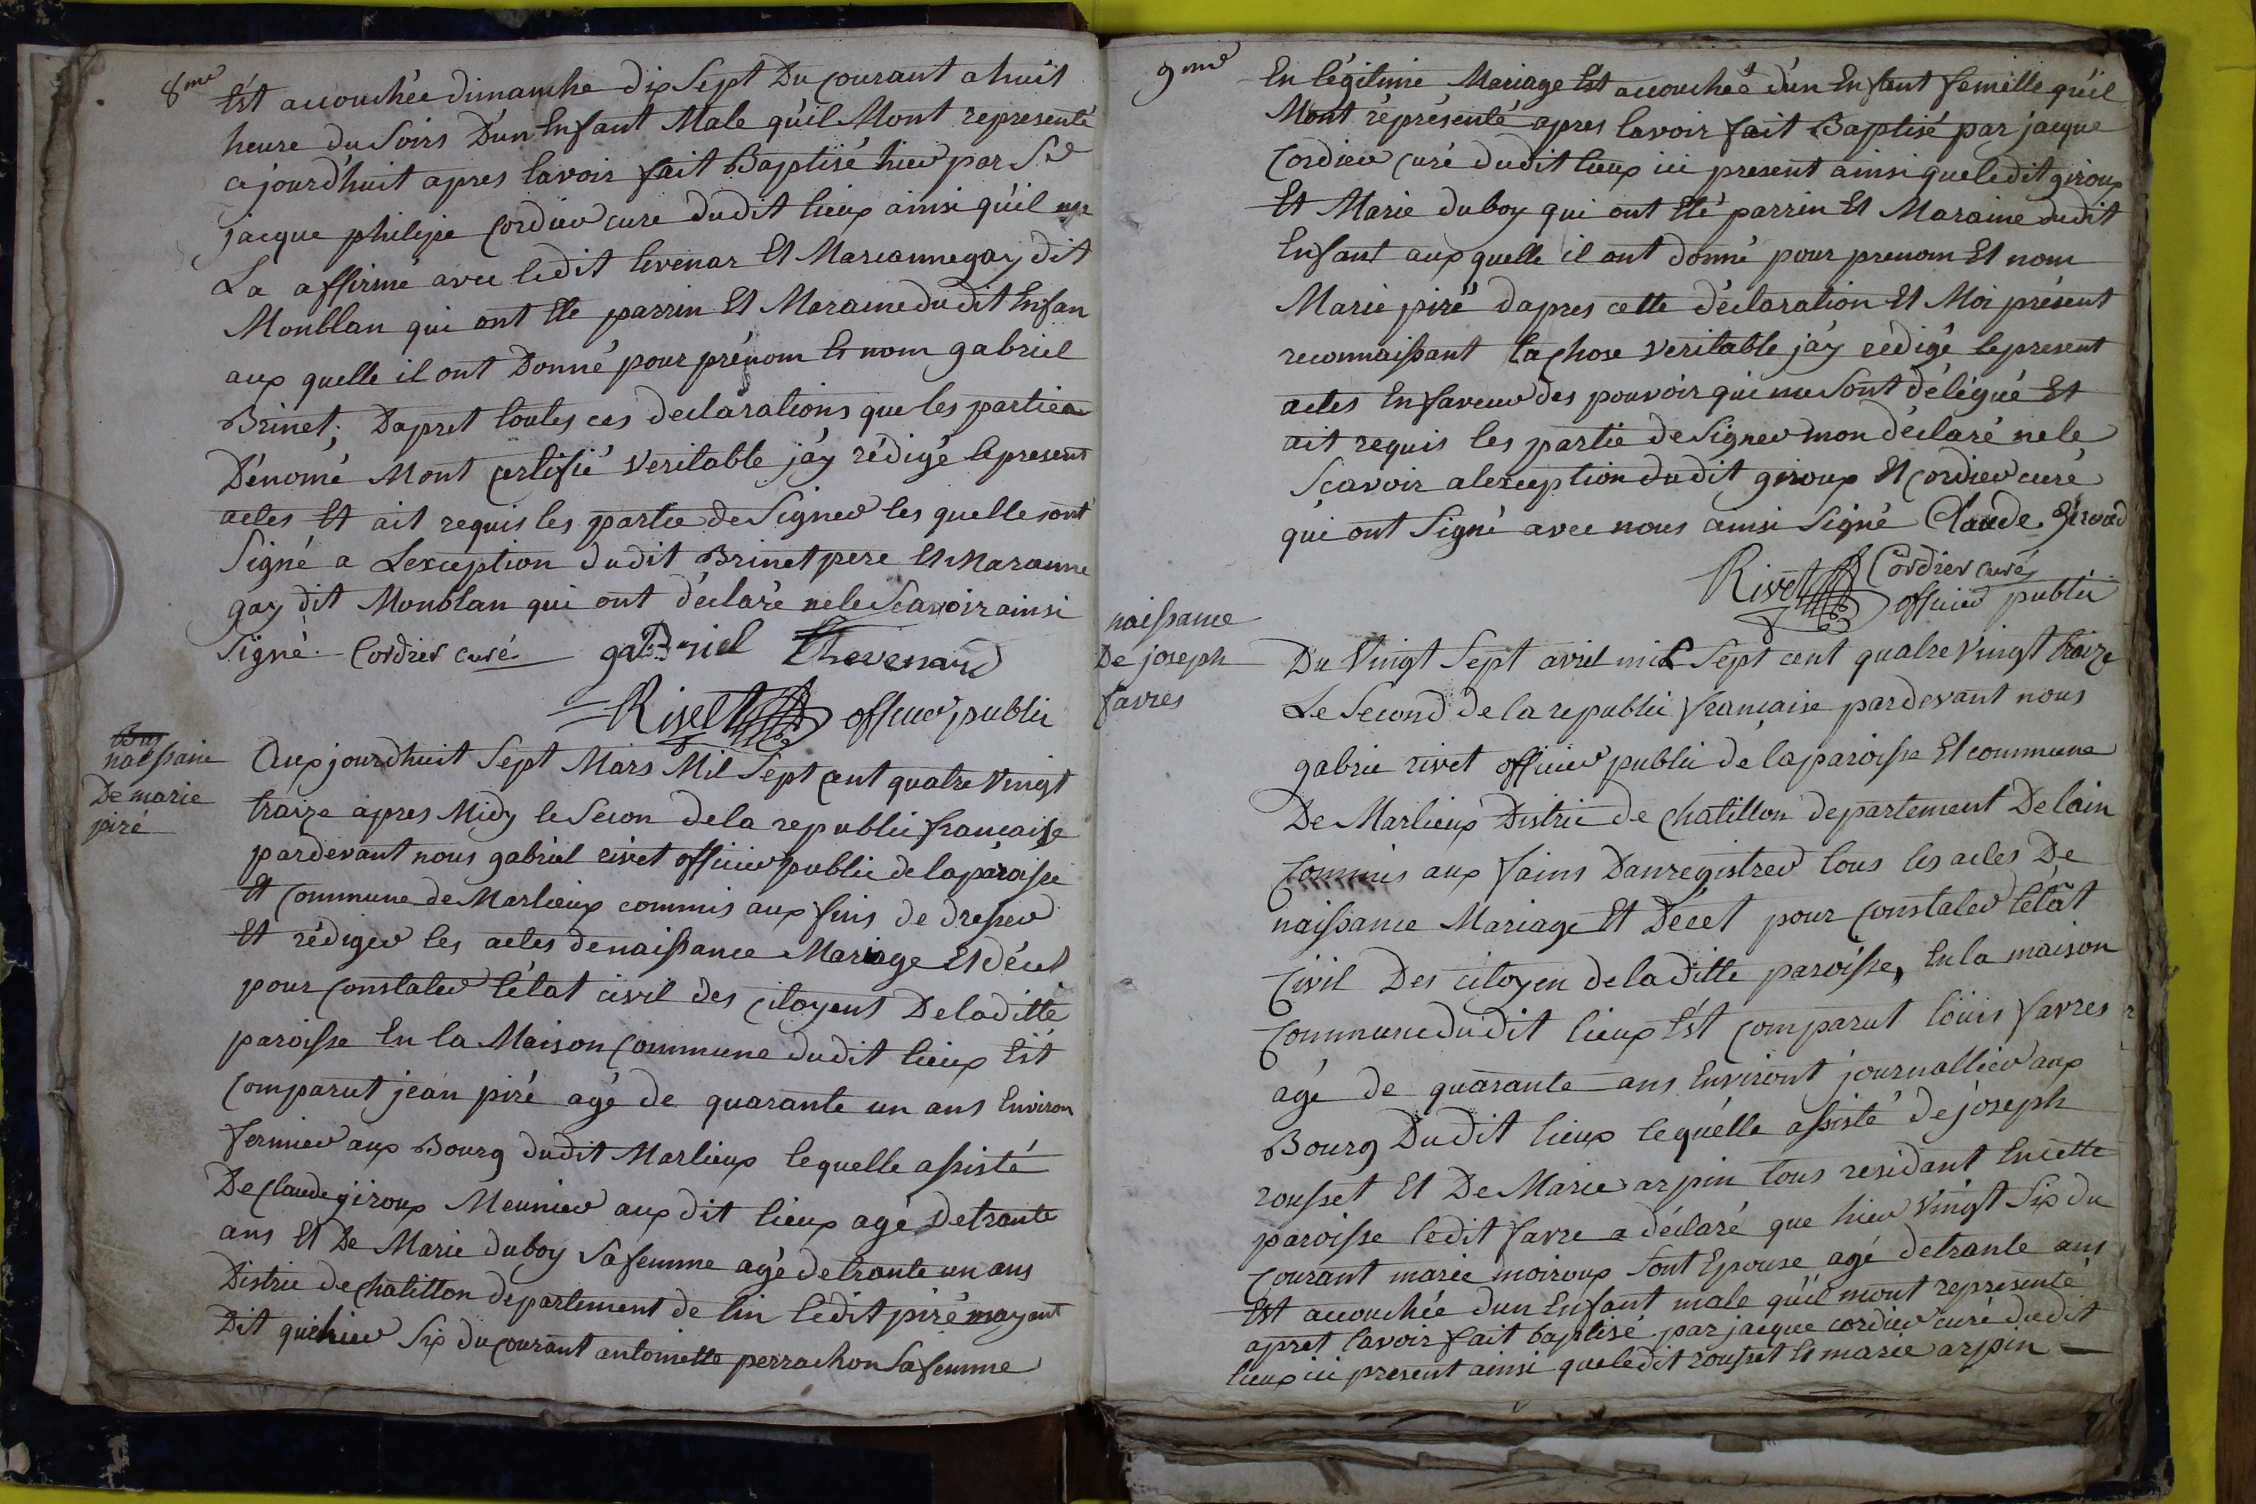 8me
Est accouchée dimanche dix Sept Du courant a huit
heure du Soirs D'un Enfant Male qu'il Mont representé
cejourd'huit apres lavoir fait Baptisé hier par Sr
jacque philipe Cordier cure dudit lieux ainsi qu'il me
La affirmé avec ledit tevenar Et Mariannegay dit
Monblan qui ont Ete parrin Et Maraine dudit Enfan
aux quelle il ont Donné pour prénom Et nom gabriel
Brinet; Dapret toutes ces declarations que les parties
Dénomé Mont certifié veritable j'ay rédigé lepresent
actes Et ait requis les partie de Signer les quelle sont
Signé a Lexception dudit Brinet pere Et Maranne
gay dit Monblan qui ont déclaré nele Scavoir ainsi
Signé. Cordier curé gabriel Thevenard
Rivet officier public
naissanc
De marie
piré
Aux jourdhuit Sept Mars Mil Sept cent quatre vingt
traize apres Midy le Secon dela republic francaise
pardevant nous gabriel rivet officier public de laparoisse
Et Commune de Marlieux commis aux fins de dresser
Et rédiger les actes de naissance Mariage Et décet
pour Constater l'état civil des Citoyens Deladitte
paroisse En la Maison Commune dudit lieux Est
Comparut jean piré agé de quarante un ans Environ
fermier aux Bourg dudit Marlieux lequelle assisté
De Claude giroux Meunier aux dit lieux agé detrante
ans Et De Marie duboy Safemme agé detrante un ans
Distric de chatillon departement de lin ledit piré mayant
Dit que hier Six du courant antoinette perrachon Safemme
9me
En légitime Mariage Est accouchéé d'un Enfant femille qu'il
Mont réprésenté apres lavoir fait Baptisé par jacque
Cordier curé dudit lieux ici present ainsi queledit giroux
Et Marie duboy qui ont Eté parrin Et Maraine dudit
Enfant aux quelle il ont donné pour prenom Et nom
Marie piré dapres cette déclaration Et Moi présent
reconnaissant la chose veritable j'ay rédigé lepresent
actes En faveur des pouvoir qui me Sont délégué Et
ait requis les partie de Signer mon déclaré nele
Scavoir alexception dudit giroux Et Cordier curé
qui ont Signé avec nous ainsi Signé Claude Giroud
Cordier curé
Rivet officier public
naissance
De joseph
favres
Du Vingt Sept avril mil Sept cent quatre Vingt traize
Le Second de la republic francaise pardevant nous
gabrie rivet officier public de laparoisse Et commune
De Marlieux Distric de chatillon departement De lain
Commis aux fains Danregistrer tous les actes De
naissance Mariage Et Décet pour Constater l'état
Civil Des citoyen deladitte paroisse, En la maison
Commune dudit lieux Est comparut louis favres
agé de quarante ans Environt journallier aux
Bourg Dudit lieux lequelle assisté de joseph
rousset Et De Marie arpin tous residant Encette
paroisse ledit favre a déclaré que hier vingt Six du
Courant marie moiroux Sont Epouse agé detrante ans
Est accouchée dun Enfant male qu'il mont representé
apret lavoir fait baptisé par jacque cordier curé dudit
lieux ici present ainsi queledit rousset Et marie arpin